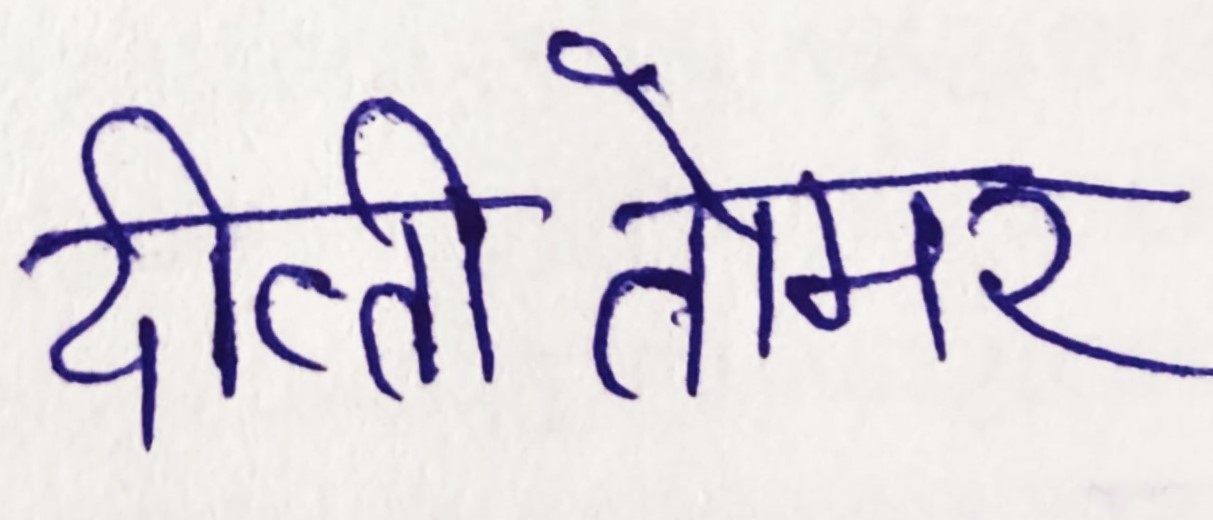 दीत्ती तोमर